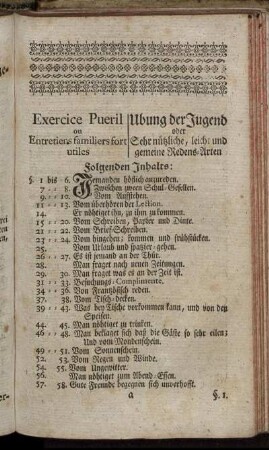 Exercice Pueril
ou
Entretiens familiers fort
utiles
Ubung der Jugend
oder
Sehr nützliche, leich: und
gemeine Redens-Arten
Folgenden Inhalts:
§. 1 bis 6. Jemanden höflich anzureden.
7 = = 8. Zwischen zween Schul-Gesellen.
9 = = 10. Vom Aufstehen.
11 = = 13. Vom überhören der Lection.
14. Er nöhtiget ihn, zu ihm zu kommen.
15 = = 20. Vom Schreiben, Papier und Dinte.
21 = = 22. Vom Brief-Schreiben.
23 = = 24. Vom hingehen; kommen und frühstücken.
25. Vom Urlaub und spatzier-gehen.
26 = = 27. Es ist jemand an der Thür.
28. Man fraget nach neuen Zeitungen.
29. 30. Man fraget was es an der Zeit ist.
31 = = 33. Besuchungs-Complimente.
34 = = 36. Von Frantzösisch reden.
37 = = 38. Vom Tisch-decken.
39 = = 43. Was bey Tische vorkommen kann, und von den
Speisen.
44. 45. Man nöhtiget zu trinken.
46 = = 48. Man beklaget sich daß die Gäste so sehr eilen;
Und vom Mondenschein.
49 = = 51. Vom Sonnenschein.
52. 53. Vom Regen und Winde.
54. 55. Vom Ungewitter.
56. Man nöhtiget zum Abend-Essen.
57. 58. Gute Freunde begegnen sich unverhofft.
a §. 1.